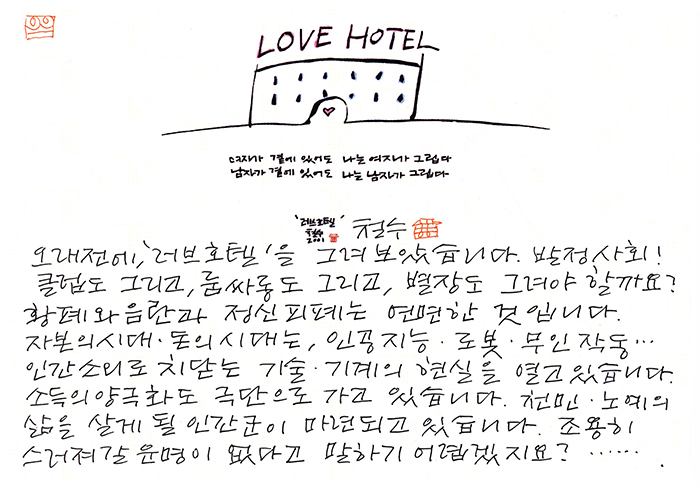 LOVE HOTEL
여자가 곁에 있어도 나는 여자가 그립다
남자가 곁에 있어도 나는 남자가 그립다
'러브호텔'
철수
2001
철수
오래전에, '러브호텔'을 그려보았습니다. 발정사회!
클럽도 그리고, 룸싸롱도 그리고, 별장도 그려야 할까요?
황폐와 음란과 정신피폐는 연면한 것입니다.
자본의시대·돈의시대는, 인공지능·로봇·무인작동…
인간소외로 치닫는 기술·기계의 현실을 열고있습니다.
소득의양극화도 극단으로 가고 있습니다. 천민·노예의
삶을 살게 될 인간군이 마련되고 있습니다. 조용히
스러져갈 운명이 없다고 말하기 어렵겠지요? ……